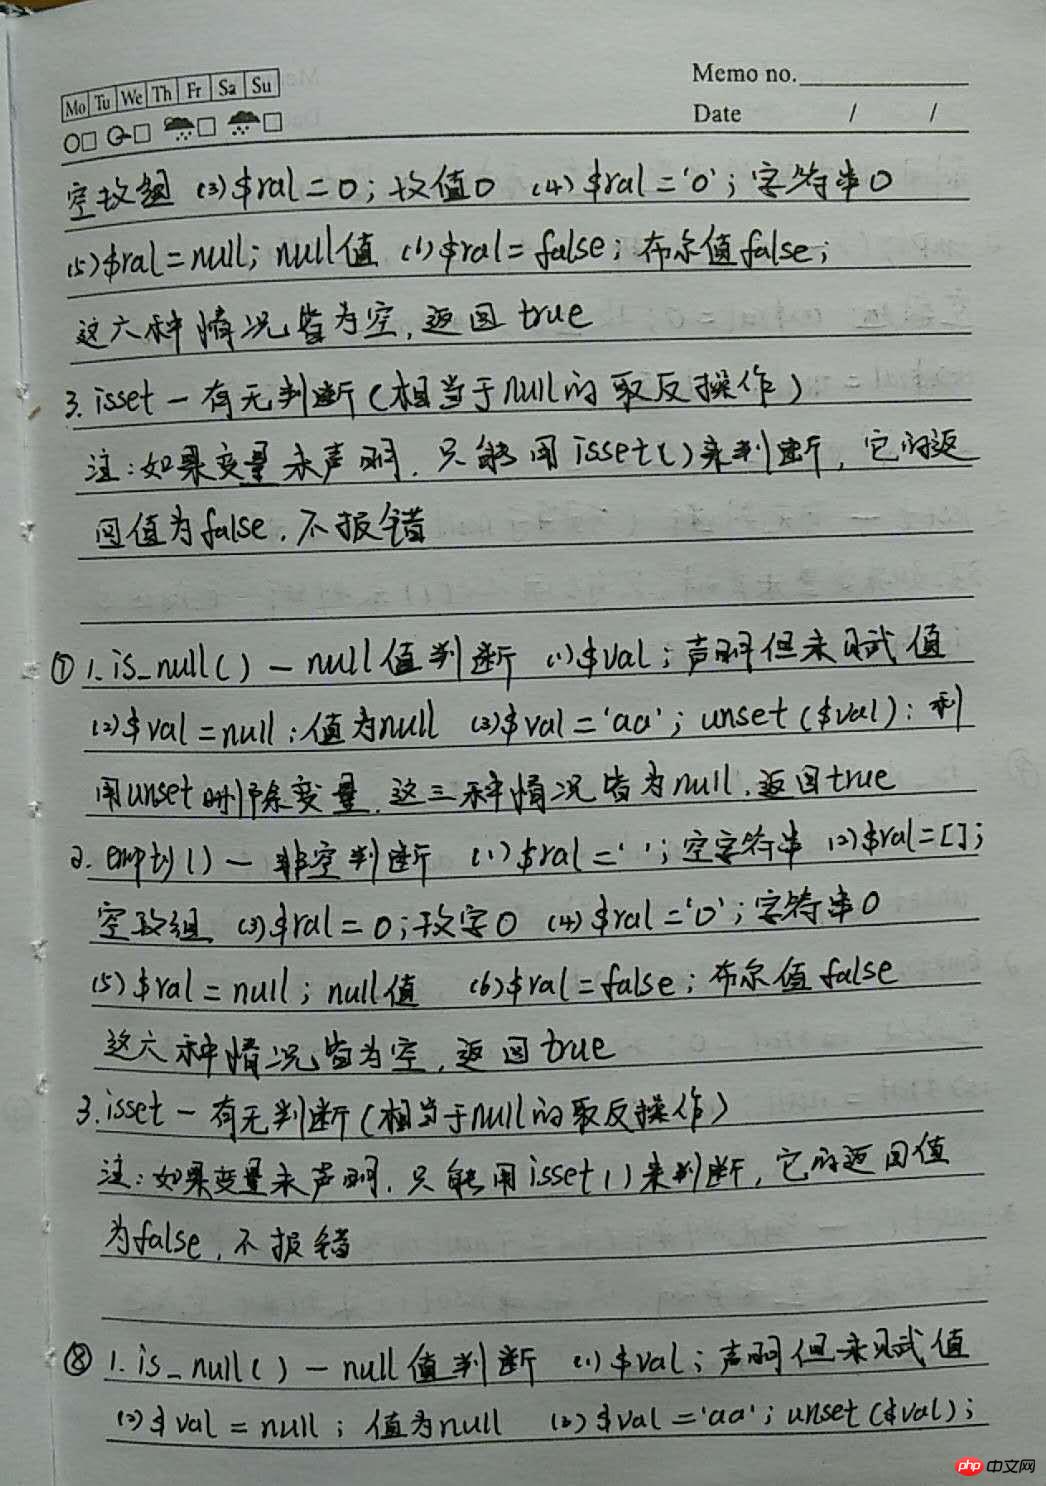 Mo Tu We Th Fr Sa Su
Memo no.
Date / /
空数组 (3)$ral=0;数值0 (4)$ral='0';字符串0
(5)$ral=null;null值 (6)$ral=false;布尔值false;
这六种情况皆为空,返回true
3.isset—有无判断(相当于null的取反操作)
注:如果变量未声明,只能用isset()来判断,它的返
回值为false,不报错
⑦1.is_null()—null值判断 (1)$val;声明但未赋值
(2)$val=null;值为null (3)$val='aa';unset($val):利
用unset删除变量,这三种情况皆为null,返回true
2.empty()—非空判断 (1)$ral='';空字符串 (2)$ral=[];
空数组 (3)$ral=0;数字0 (4)$ral='0';字符串0
(5)$ral=null;null值 (6)$ral=false;布尔值false
这六种情况皆为空,返回true
3.isset—有无判断(相当于null的取反操作)
注:如果变量未声明,只能用isset()来判断,它的返回值
为false,不报错
⑧1.is_null()—null值判断 (1)$val;声明但未赋值
(2)$val=null;值为null (3)$val='aa';unset($val);
php中文网